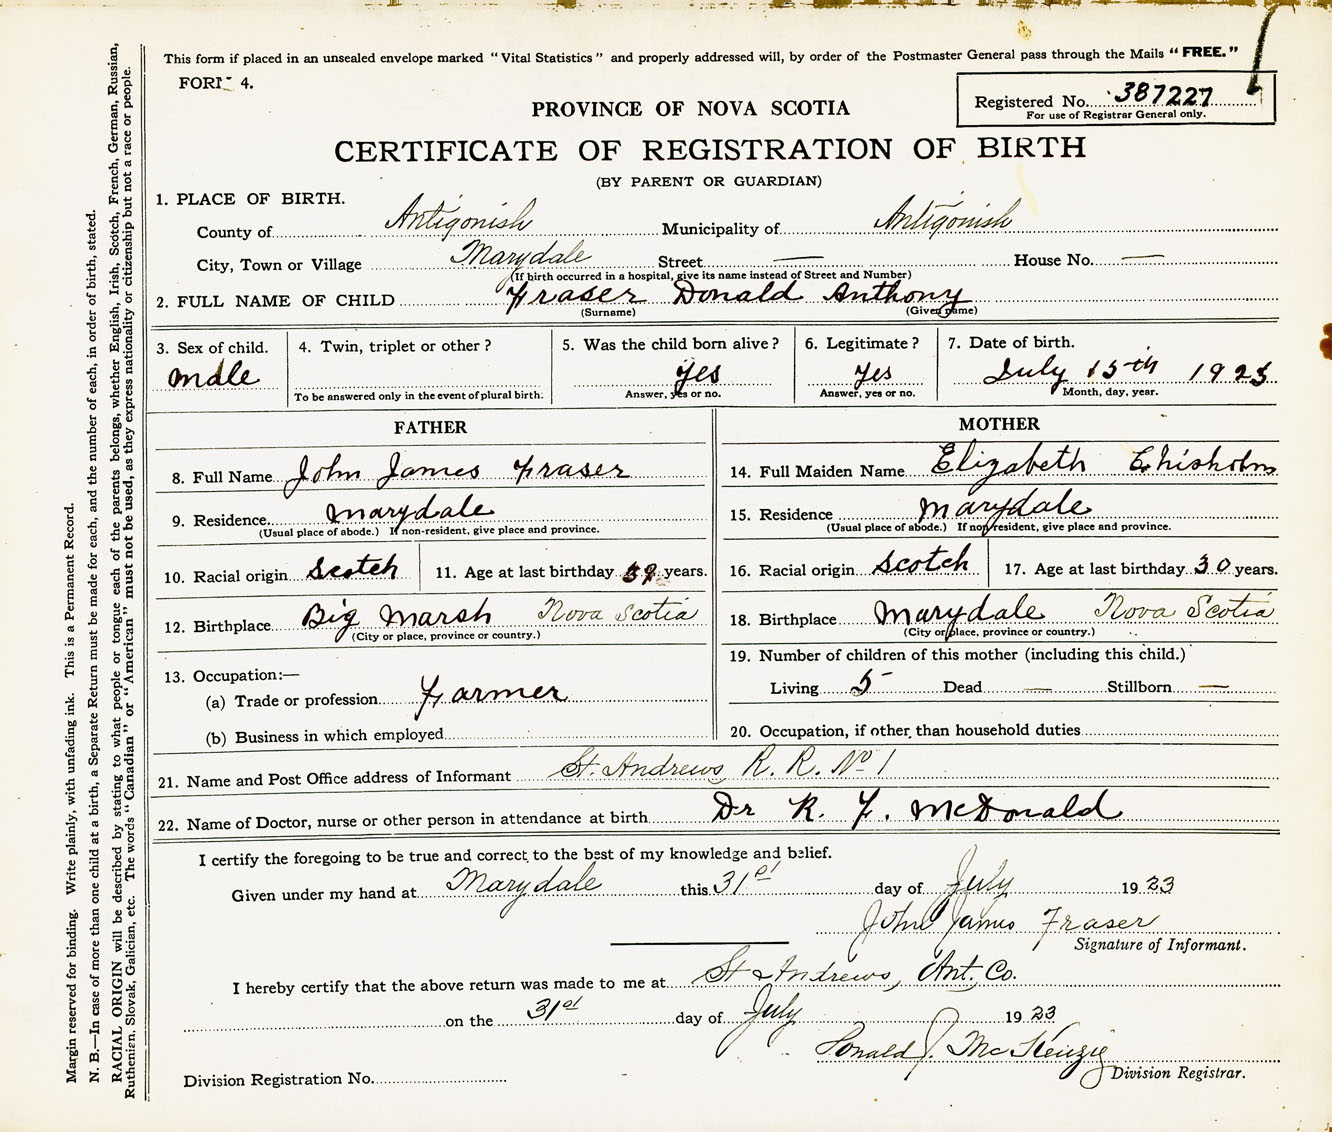 This form if placed in an unsealed envelope marked "Vital Statistics" and properly addressed will, by order of the Postmaster General pass through the Mails "FREE."
FORM 4.
Registered No. 387227
For use of Registrar General only.
PROVINCE OF NOVA SCOTIA
CERTIFICATE OF REGISTRATION OF BIRTH
(BY PARENT OR GUARDIAN)
1. PLACE OF BIRTH.
County of Antigonish Municipality of Antigonish
City, Town or Village Marydale Street — House No. —
(If birth occurred in a hospital, give its name instead of Street and Number)
2. FULL NAME OF CHILD Fraser Donald Anthony
(Surname) (Given name)
3. Sex of child. 4. Twin, triplet or other? 5. Was the child born alive? 6. Legitimate? 7. Date of birth.
Male yes yes July 15th 1923
To be answered only in the event of plural birth. Answer, yes or no. Answer, yes or no. Month, day, year.
FATHER
8. Full Name John James Fraser
9. Residence Marydale
(Usual place of abode.) If non-resident, give place and province.
10. Racial origin Scotch 11. Age at last birthday 39 years.
12. Birthplace Big Marsh Nova Scotia
(City or place, province or country.)
13. Occupation:—
(a) Trade or profession Farmer
(b) Business in which employed
MOTHER
14. Full Maiden Name Elizabeth Chisholm
15. Residence Marydale
(Usual place of abode.) If non-resident, give place and province.
16. Racial origin Scotch 17. Age at last birthday 30 years.
18. Birthplace Marydale Nova Scotia
(City or place, province or country.)
19. Number of children of this mother (including this child.)
Living 5 Dead — Stillborn —
20. Occupation, if other than household duties
21. Name and Post Office address of Informant St. Andrews R. R. No 1
22. Name of Doctor, nurse or other person in attendance at birth Dr R. F. McDonald
I certify the foregoing to be true and correct to the best of my knowledge and belief.
Given under my hand at Marydale this 31st day of July 1923
John James Fraser
Signature of Informant.
I hereby certify that the above return was made to me at St Andrews, Ant. Co.
on the 31st day of July 1923
Donald J. McKenzie
Division Registrar.
Division Registration No.
Margin reserved for binding. Write plainly, with unfading ink. This is a Permanent Record.
N. B.—In case of more than one child at a birth, a Separate Return must be made for each, and the number of each, in order of birth, stated.
RACIAL ORIGIN will be described by stating to what people or tongue each of the parents belongs, whether English, Irish, Scotch, French, German, Russian,
Ruthenian, Slovak, Galician, etc. The words "Canadian" or "American" must not be used, as they express nationality or citizenship but not a race or people.